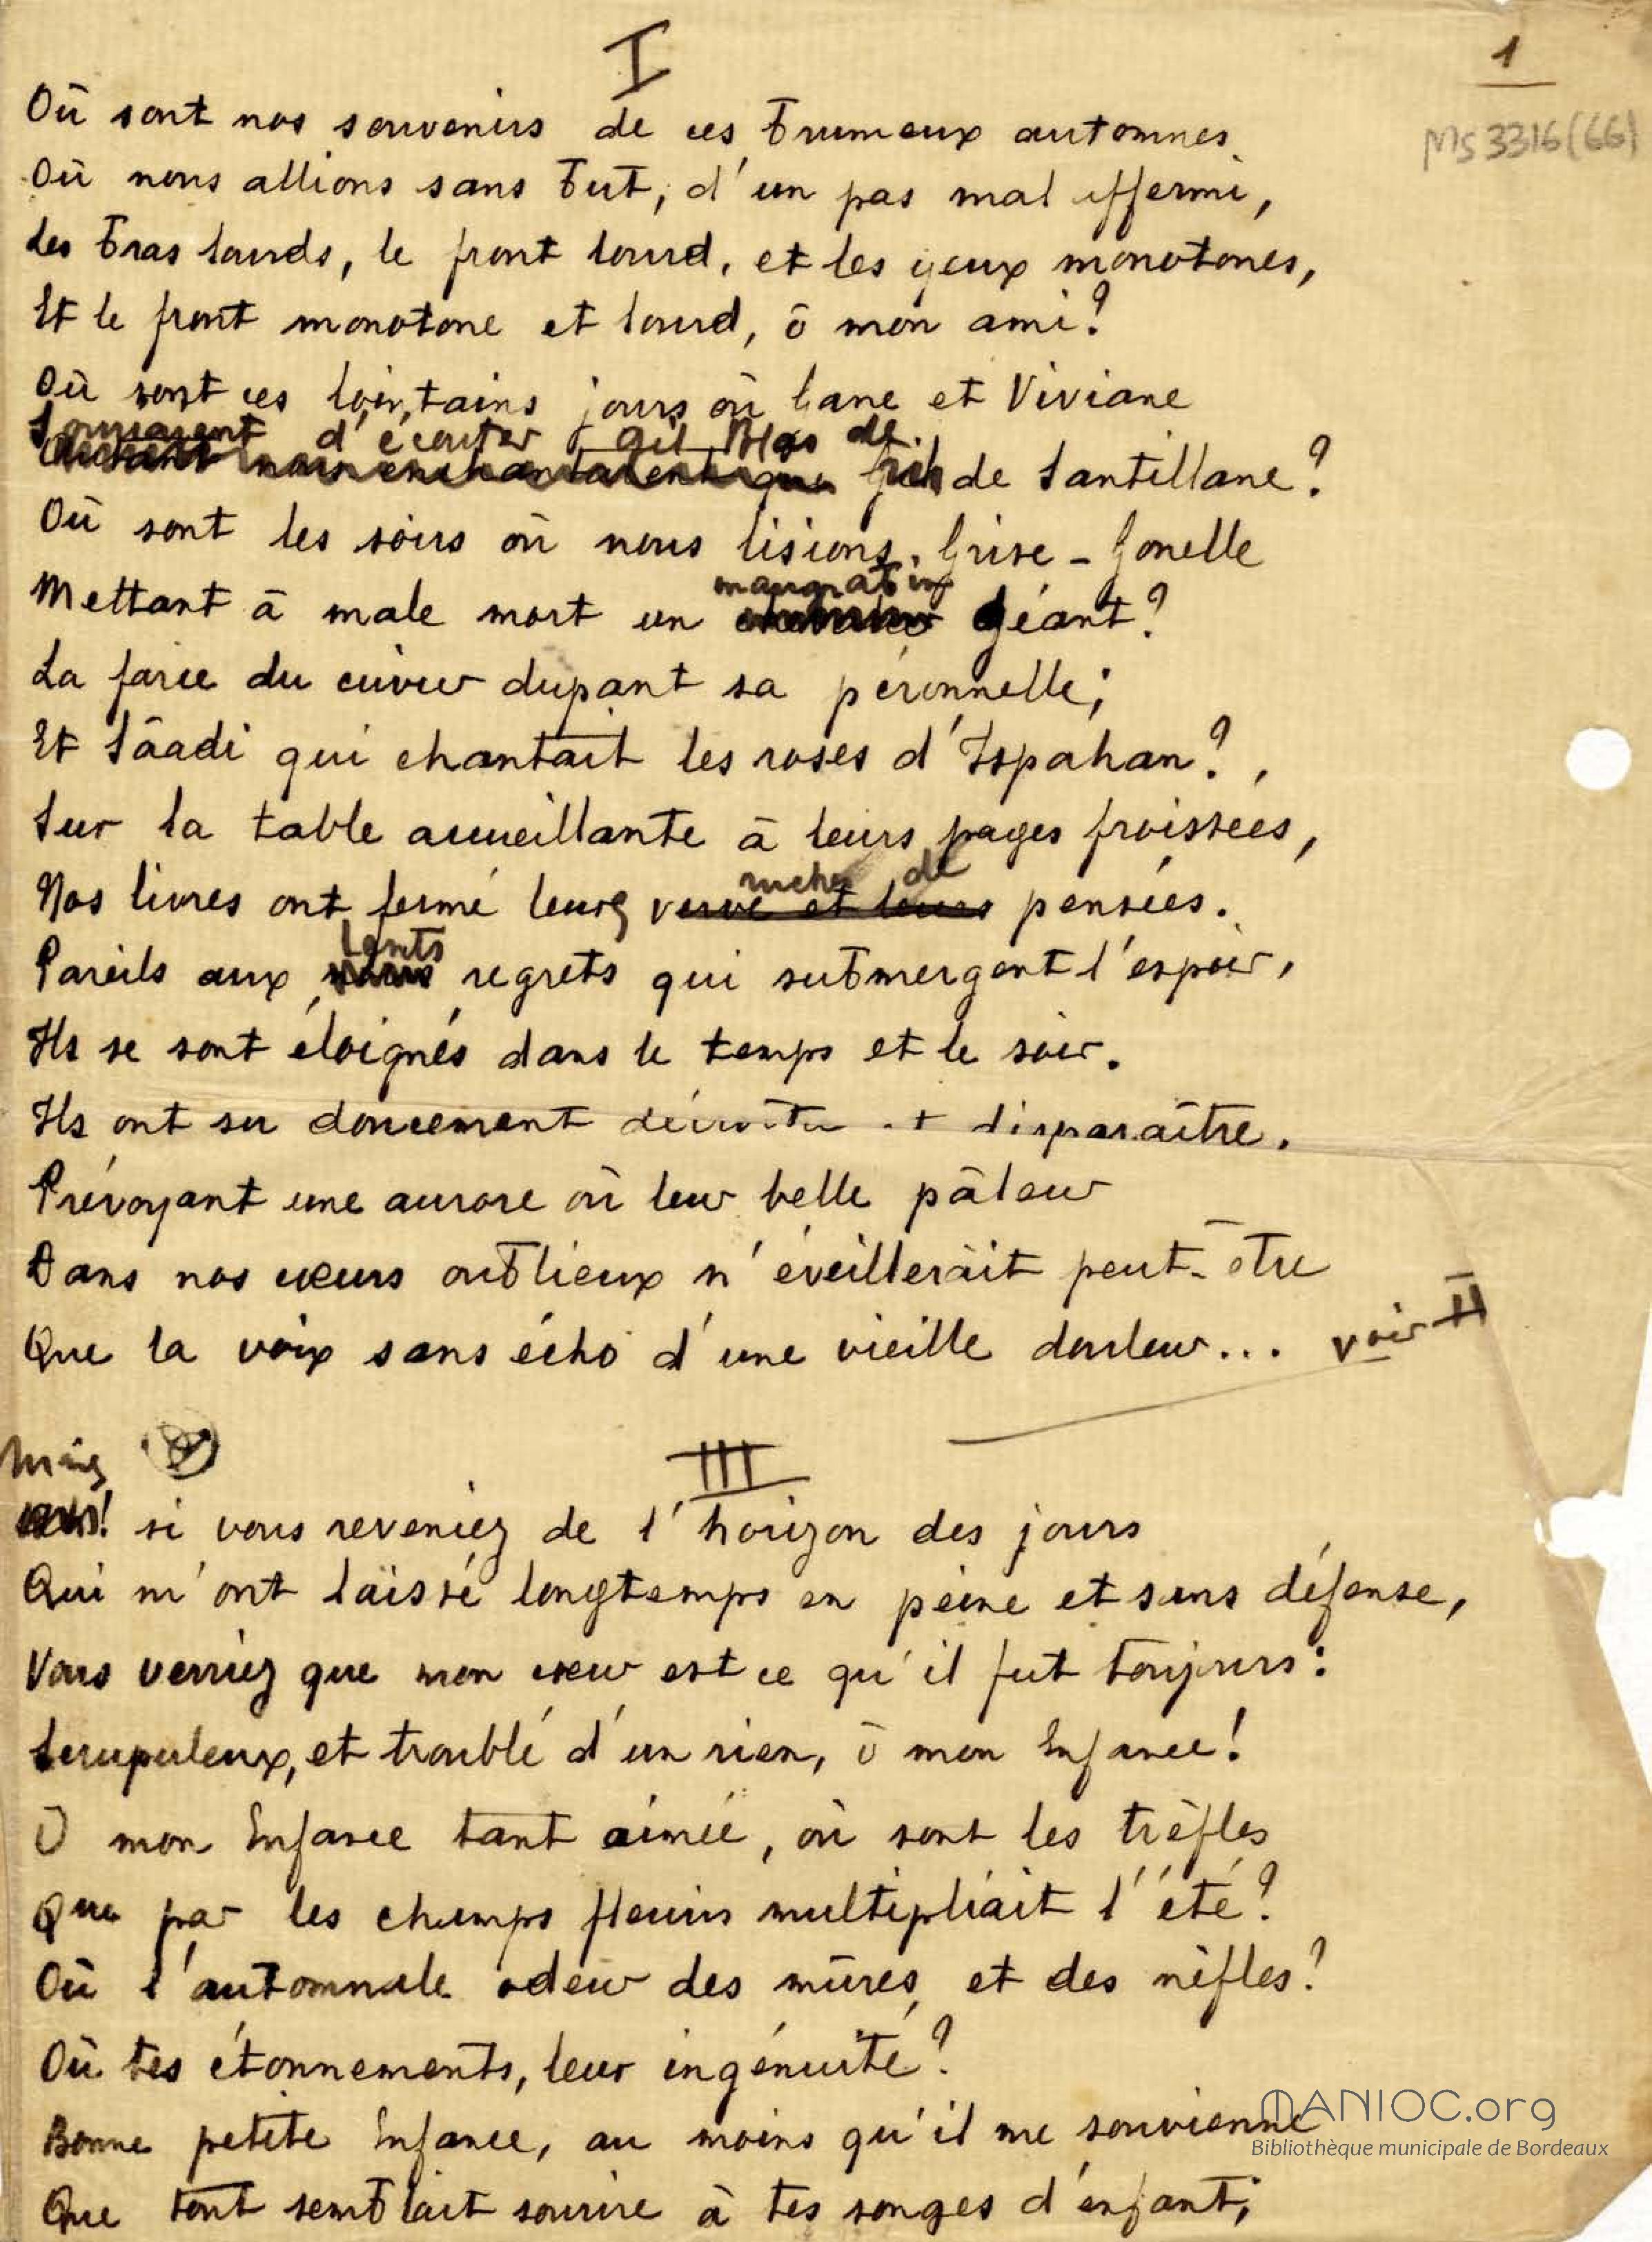 I
1
Ms 3316(66)
Où sont nos souvenirs de ces brumeux automnes
Où nous allions sans but, d'un pas mal affermi,
Les bras lourds, le front lourd, et les yeux monotones,
Et le front monotone et lourd, ô mon ami?
Où sont ces lointains jours où Lane et Viviane
Souriaient d'écouter Gil Blas de
de Santillane?
Où sont les soirs où nous lisions Grise-Gonelle
maugrabin
Mettant à male mort un géant?
La farce du cuvier dupant sa péronnelle;
Et Sâadi qui chantait les roses d'Ispahan?
Sur la table accueillante à leurs pages froissées,
ruches de
Nos livres ont fermé leurs verve et leurs pensées.
lents
Pareils aux regrets qui submergent l'espoir,
Ils se sont éloignés dans le temps et le soir.
Ils ont su doucement décroître et disparaître.
Prévoyant une aurore où leur belle pâleur
Dans nos cœurs oublieux n'éveillerait peut-être
Que la voix sans écho d'une vieille douleur... voir II
III
Mais
si vous reveniez de l'horizon des jours
Qui m'ont laissé longtemps en peine et sans défense,
Vous verriez que mon cœur est ce qu'il fut toujours:
Scrupuleux, et troublé d'un rien, ô mon Enfance!
Ô mon Enfance tant aimée, où sont les trèfles
Que par les champs fleuris multipliait l'été?
Où l'automnale odeur des mûres et des nèfles?
Où tes étonnements, leur ingénuité?
Bonne petite Enfance, au moins qu'il me souvienne
Que tout semblait sourire à tes songes d'enfant;
MANIOC.org
Bibliothèque municipale de Bordeaux